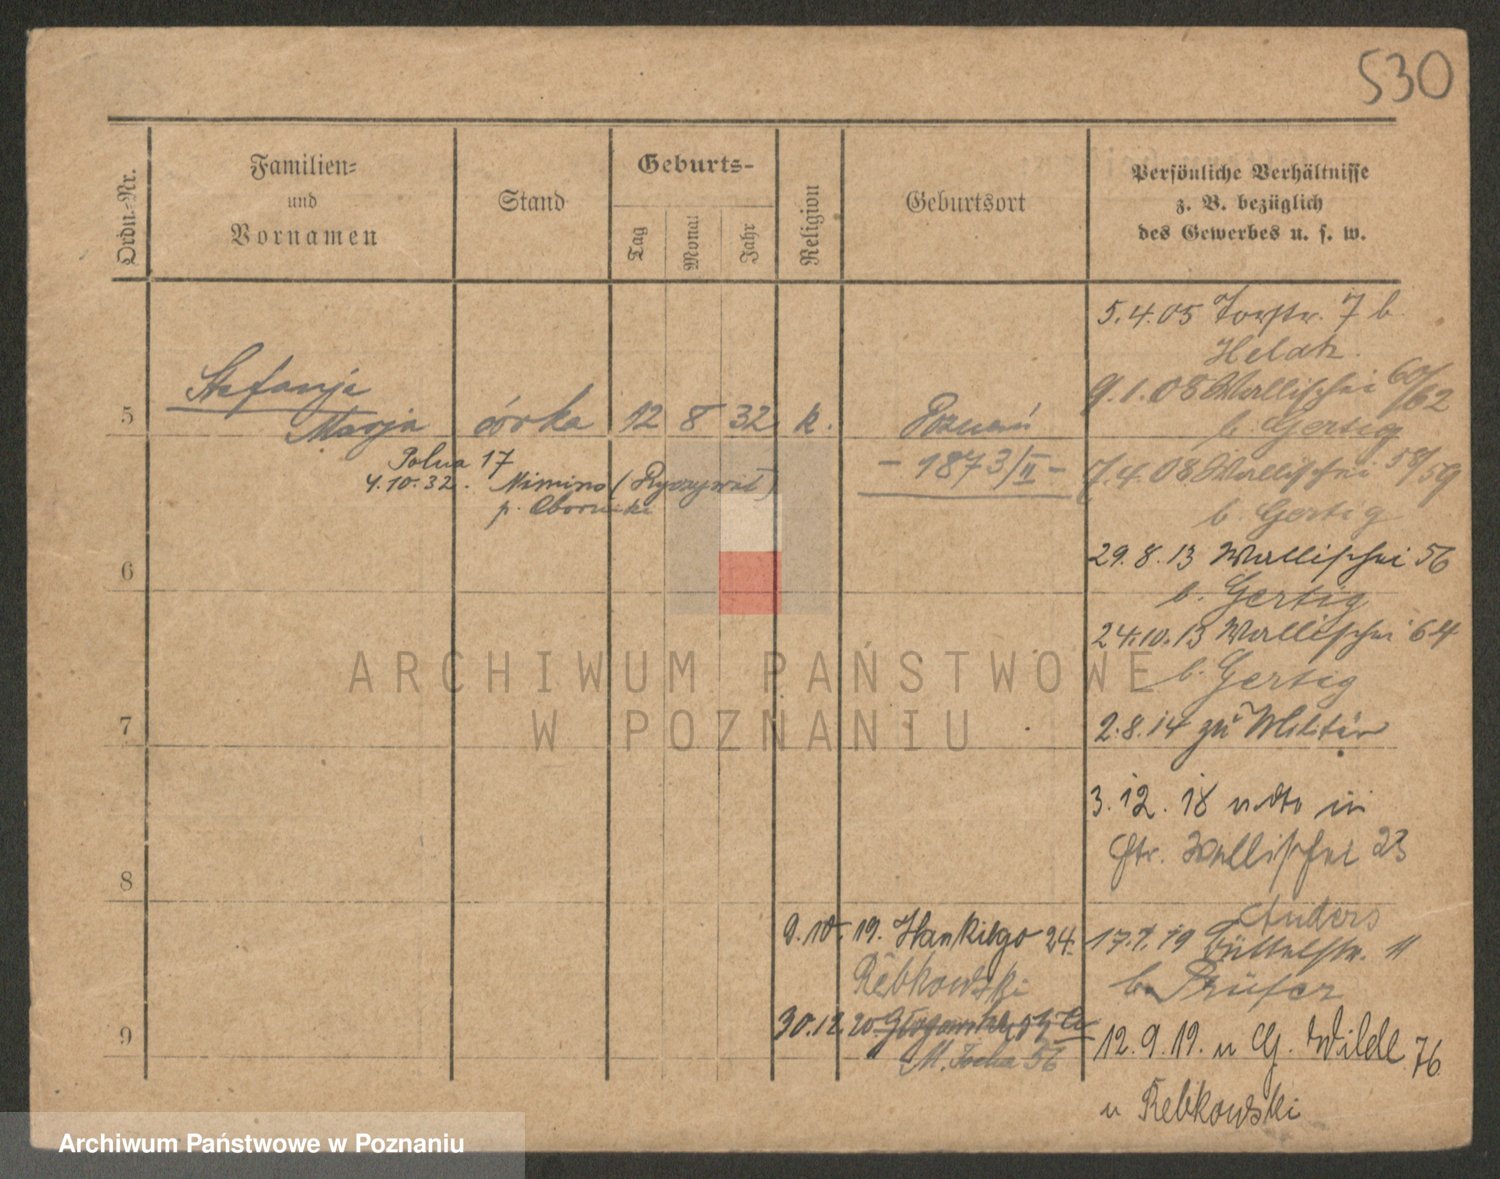 530
Ordn.-Nr.
Familien-
und
Vornamen
Stand
Geburts-
Tag
Monat
Jahr
Religion
Geburtsort
Persönliche Verhältnisse
z. B. bezüglich
des Gewerbes u. s. w.
5
Stefanja
Marja
córka
12
8
32
k.
Poznań
- 1873/II -
Polna 17
4.10.32. Nimino (Ryczywół)
p. Oborniki
6
7
8
9
5.4.05 Torstr. 7 b.
Helak.
9.1.08 Wallischei 60/62
b. Gertig
7.4.08 Wallischei 58/59
b. Gertig
29.8.13 Wallischei 56
b. Gertig
24.10.13 Wallischei 64
b. Gertig
2.8.14 zu Militär
3.12.18
Wallischei 23
Anders
17.7.19 Büttelstr. 11
b. Prüfer
12.9.19. u G. Wilde 76
u Rebkowski
9.10.19. Hankiego 24.
Rebkowski
30.12.20
M. Focha 56
ARCHIWUM PAŃSTWOWE
W POZNANIU
Archiwum Państwowe w Poznaniu